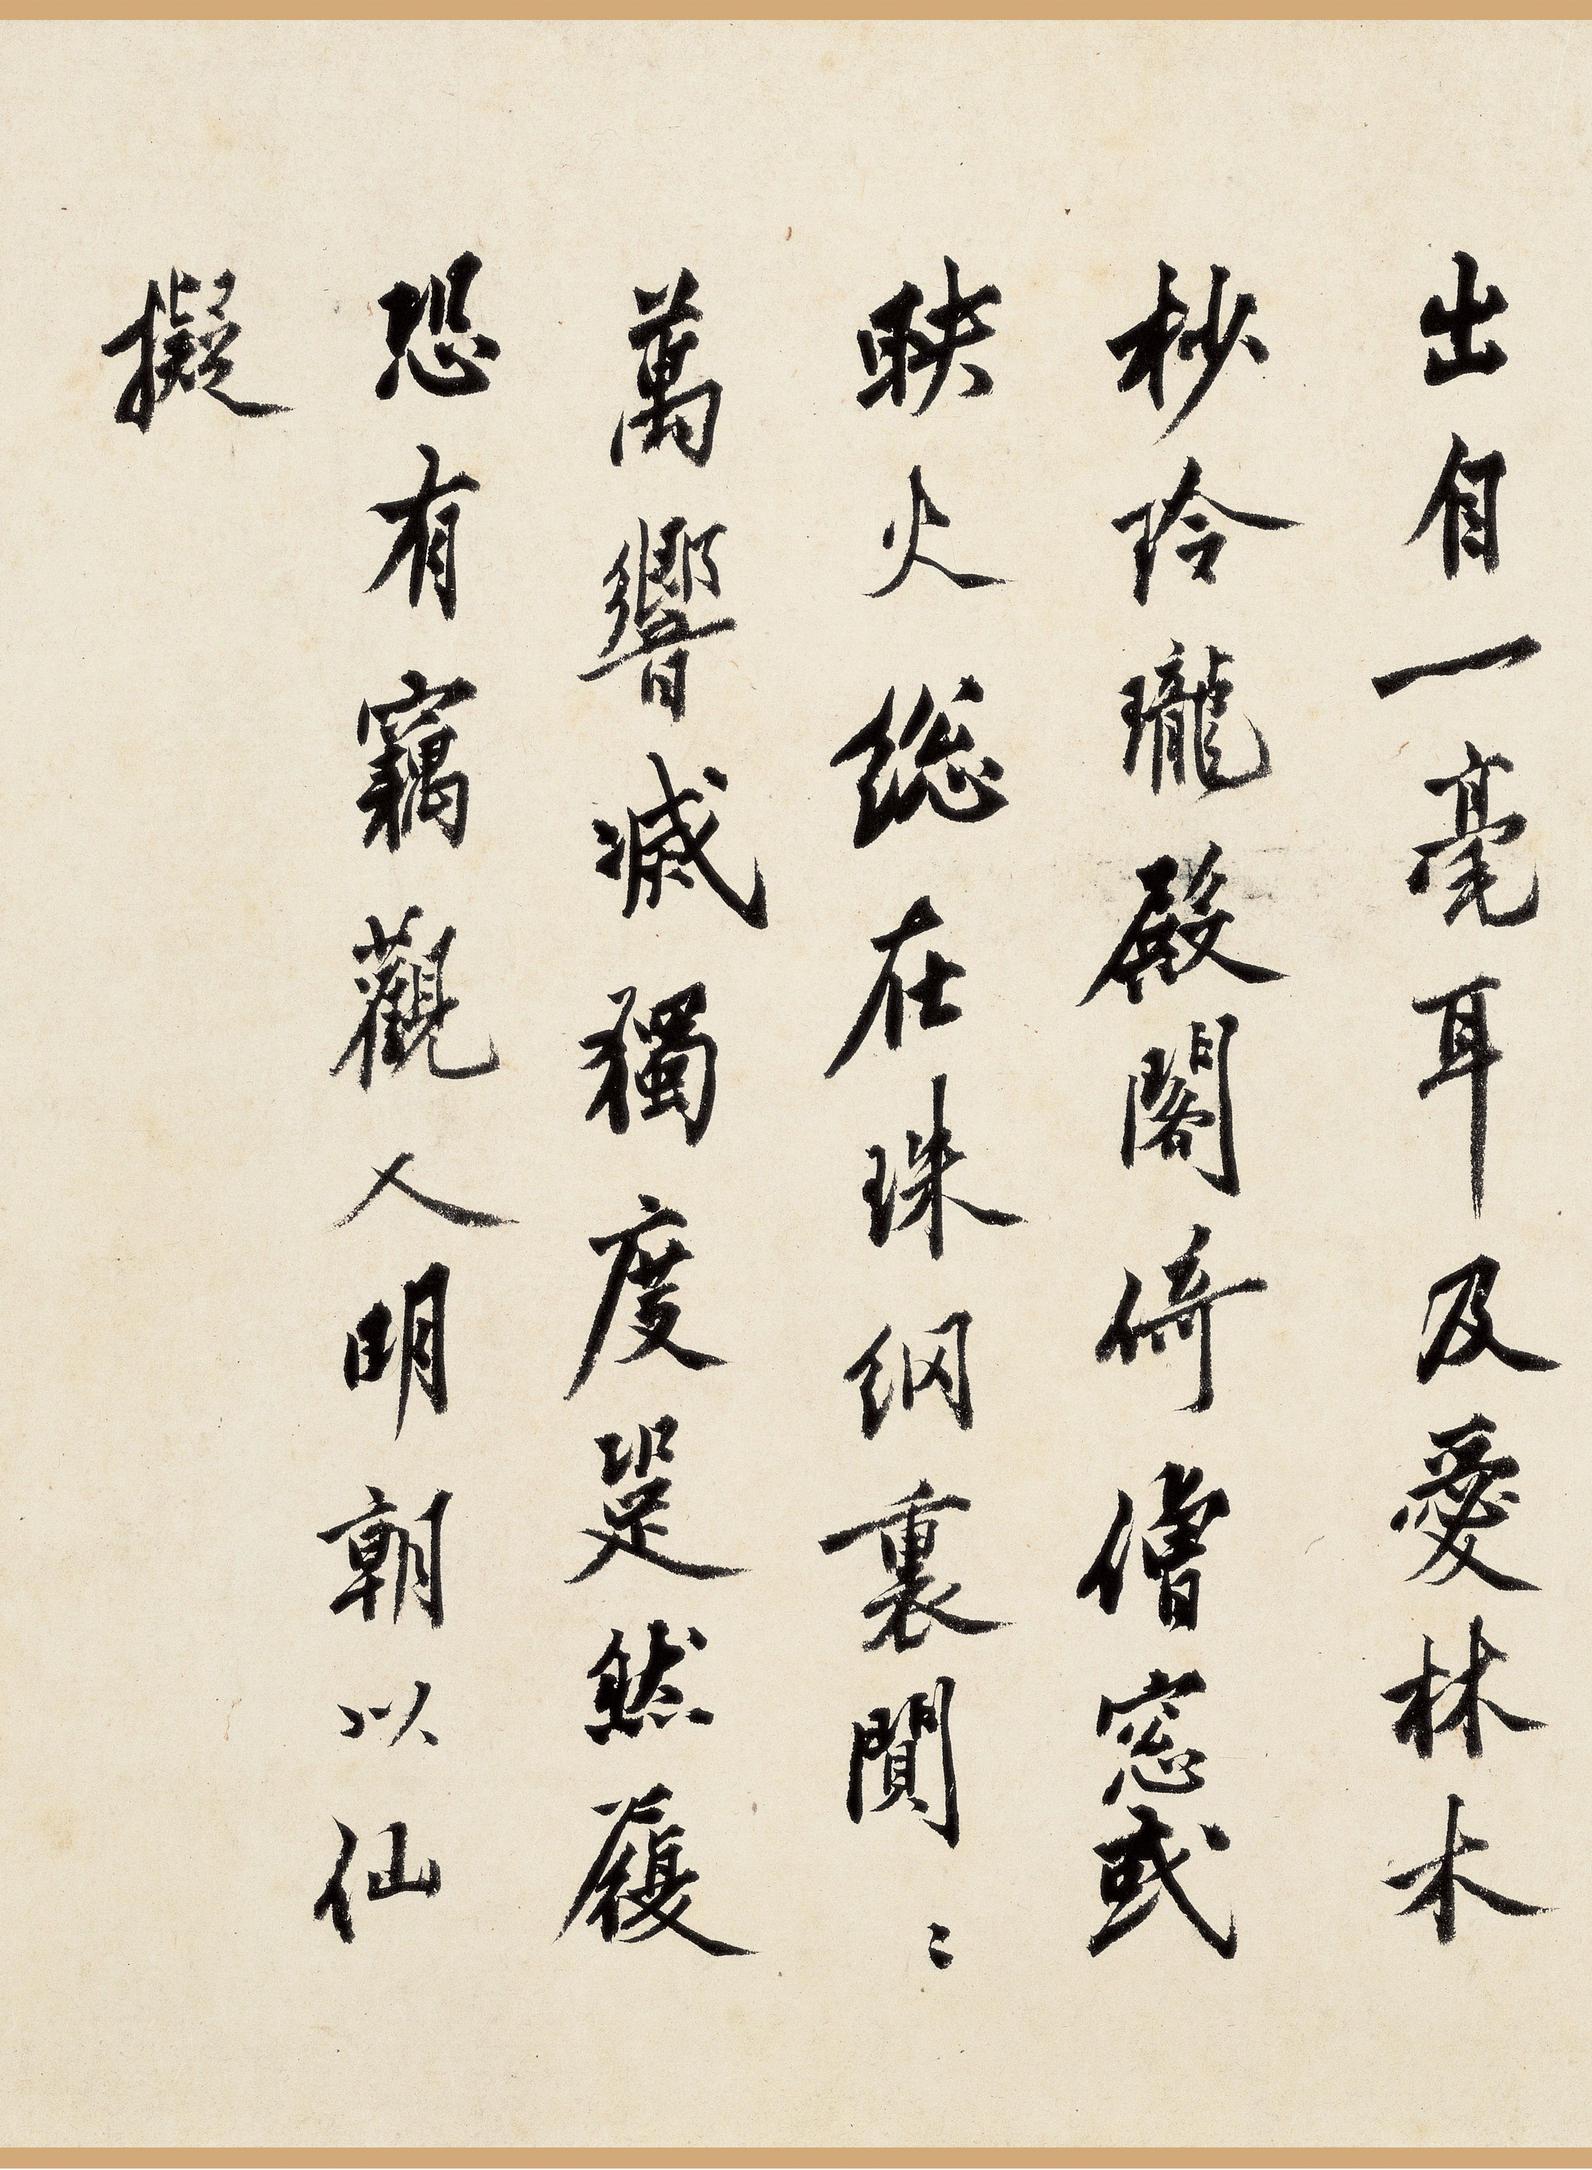 出自一毫耳及愛林木
杪玲瓏殿閣倚僧窓或
映火總在珠網裏閴〻
萬響滅獨度跫然履
恐有竊觀人明朝以仙
擬